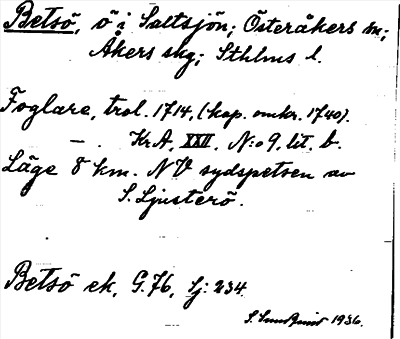 Betsö, ö i Saltsjön; Österåkers sn;
Åkers skg; Sthlms l.
Foglare, trol. 1714, (kop. omkr. 1740).
— . Kr.A. XXII, N:o 9. lit. b.
Läge 8 km. NV sydspetsen av
S. Ljusterö.
Betsö ek. G.76, Sj: 234.
S. Sundquist 1936.